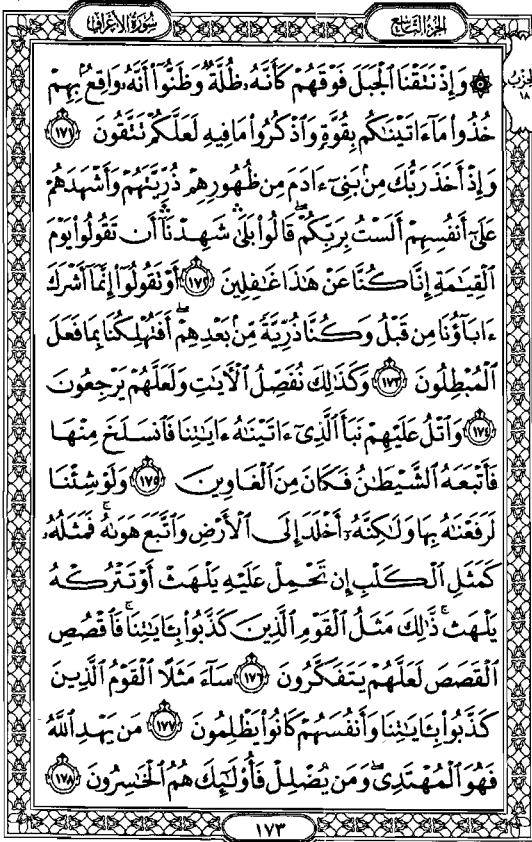 سُورَةُ الأَعْرَافِ
الجُزْءُ التَّاسِعُ
الحِزْبُ ١٨
۞ وَإِذْ نَتَقْنَا ٱلْجَبَلَ فَوْقَهُمْ كَأَنَّهُۥ ظُلَّةٌ وَظَنُّوٓا۟ أَنَّهُۥ وَاقِعٌۢ بِهِمْ
خُذُوا۟ مَآ ءَاتَيْنَٰكُم بِقُوَّةٍ وَٱذْكُرُوا۟ مَا فِيهِ لَعَلَّكُمْ تَتَّقُونَ ١٧١
وَإِذْ أَخَذَ رَبُّكَ مِنۢ بَنِىٓ ءَادَمَ مِن ظُهُورِهِمْ ذُرِّيَّتَهُمْ وَأَشْهَدَهُمْ
عَلَىٰٓ أَنفُسِهِمْ أَلَسْتُ بِرَبِّكُمْ ۖ قَالُوا۟ بَلَىٰ ۛ شَهِدْنَآ ۛ أَن تَقُولُوا۟ يَوْمَ
ٱلْقِيَٰمَةِ إِنَّا كُنَّا عَنْ هَٰذَا غَٰفِلِينَ ١٧٢ أَوْ تَقُولُوٓا۟ إِنَّمَآ أَشْرَكَ
ءَابَآؤُنَا مِن قَبْلُ وَكُنَّا ذُرِّيَّةً مِّنۢ بَعْدِهِمْ ۖ أَفَتُهْلِكُنَا بِمَا فَعَلَ
ٱلْمُبْطِلُونَ ١٧٣ وَكَذَٰلِكَ نُفَصِّلُ ٱلْءَايَٰتِ وَلَعَلَّهُمْ يَرْجِعُونَ
١٧٤ وَٱتْلُ عَلَيْهِمْ نَبَأَ ٱلَّذِىٓ ءَاتَيْنَٰهُ ءَايَٰتِنَا فَٱنسَلَخَ مِنْهَا
فَأَتْبَعَهُ ٱلشَّيْطَٰنُ فَكَانَ مِنَ ٱلْغَاوِينَ ١٧٥ وَلَوْ شِئْنَا
لَرَفَعْنَٰهُ بِهَا وَلَٰكِنَّهُۥٓ أَخْلَدَ إِلَى ٱلْأَرْضِ وَٱتَّبَعَ هَوَىٰهُ ۚ فَمَثَلُهُۥ
كَمَثَلِ ٱلْكَلْبِ إِن تَحْمِلْ عَلَيْهِ يَلْهَثْ أَوْ تَتْرُكْهُ
يَلْهَث ۚ ذَّٰلِكَ مَثَلُ ٱلْقَوْمِ ٱلَّذِينَ كَذَّبُوا۟ بِـَٔايَٰتِنَا ۚ فَٱقْصُصِ
ٱلْقَصَصَ لَعَلَّهُمْ يَتَفَكَّرُونَ ١٧٦ سَآءَ مَثَلًا ٱلْقَوْمُ ٱلَّذِينَ
كَذَّبُوا۟ بِـَٔايَٰتِنَا وَأَنفُسَهُمْ كَانُوا۟ يَظْلِمُونَ ١٧٧ مَن يَهْدِ ٱللَّهُ
فَهُوَ ٱلْمُهْتَدِى ۖ وَمَن يُضْلِلْ فَأُو۟لَٰٓئِكَ هُمُ ٱلْخَٰسِرُونَ ١٧٨
١٧٣